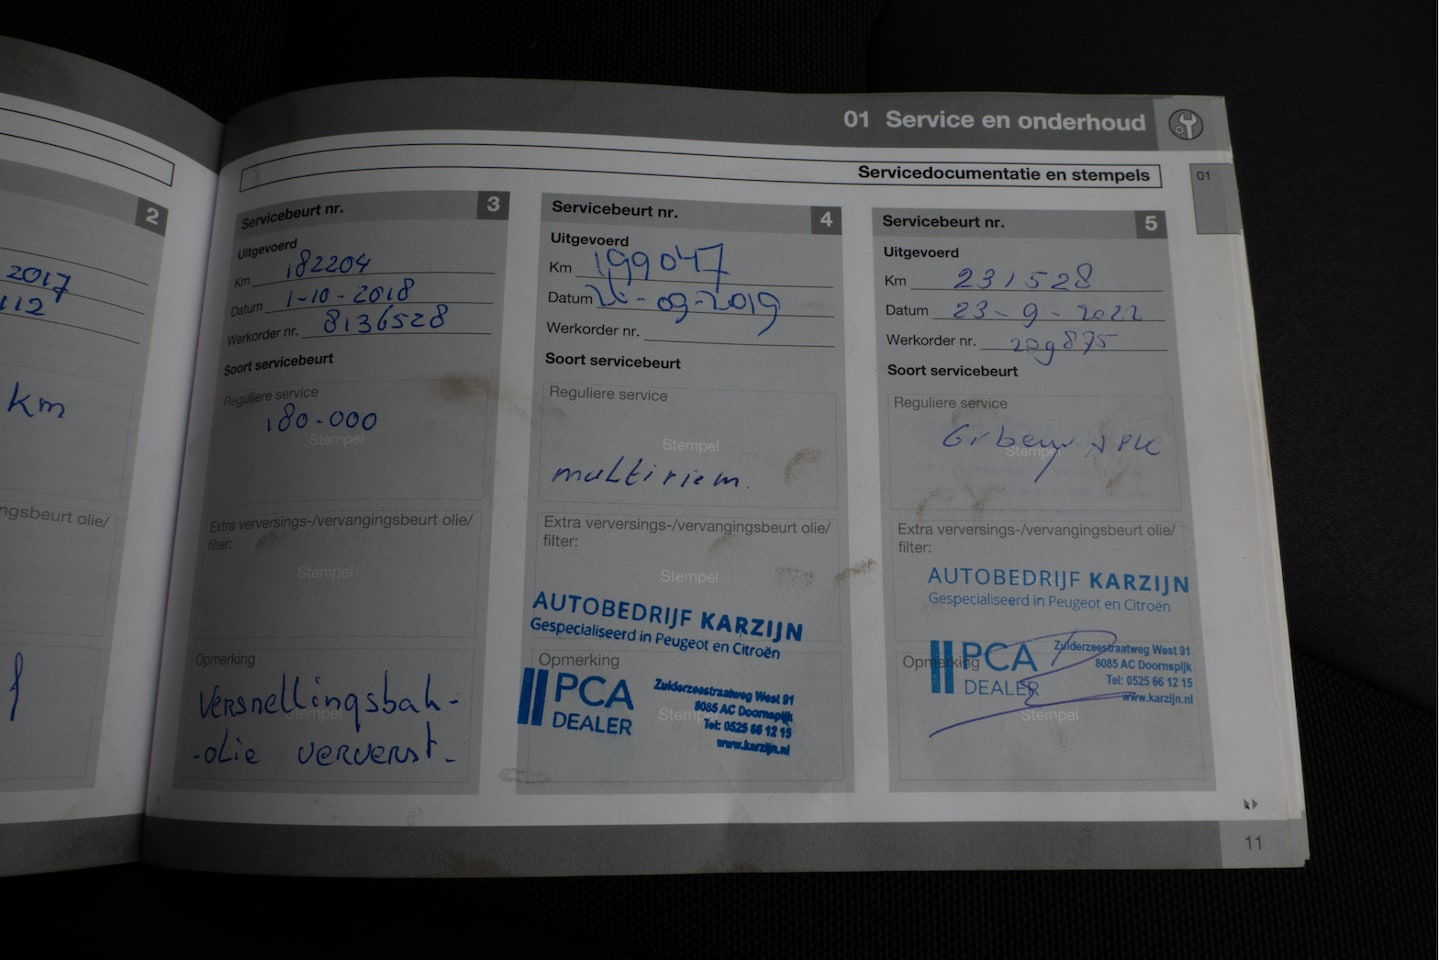 01 Service en onderhoud
Servicedocumentatie en stempels
01
2
2017
112
km
ngsbeurt olie/
Servicebeurt nr. 3
Uitgevoerd
Km 182204
Datum 1-10-2018
Werkorder nr. 8136528
Soort servicebeurt
Reguliere service
180.000
Stempel
Extra verversings-/vervangingsbeurt olie/
filter:
Stempel
Opmerking
Versnellingsbak-
Stempel
-olie ververst-
Servicebeurt nr. 4
Uitgevoerd
Km 199047
Datum -09-2019
Werkorder nr.
Soort servicebeurt
Reguliere service
Stempel
multiriem.
Extra verversings-/vervangingsbeurt olie/
filter:
Stempel
AUTOBEDRIJF KARZIJN
Gespecialiseerd in Peugeot en Citroën
Opmerking
PCA
DEALER
Stempel
Zuiderzeestraatweg West 91
8085 AC Doornspijk
Tel: 0525 66 12 15
www.karzijn.nl
Servicebeurt nr. 5
Uitgevoerd
Km 231528
Datum 23-9-2022
Werkorder nr. 209875
Soort servicebeurt
Reguliere service
Stempel
Extra verversings-/vervangingsbeurt olie/
filter:
AUTOBEDRIJF KARZIJN
Gespecialiseerd in Peugeot en Citroën
Opmerking
PCA
DEALER
Zuiderzeestraatweg West 91
8085 AC Doornspijk
Tel: 0525 66 12 15
www.karzijn.nl
Stempel
11